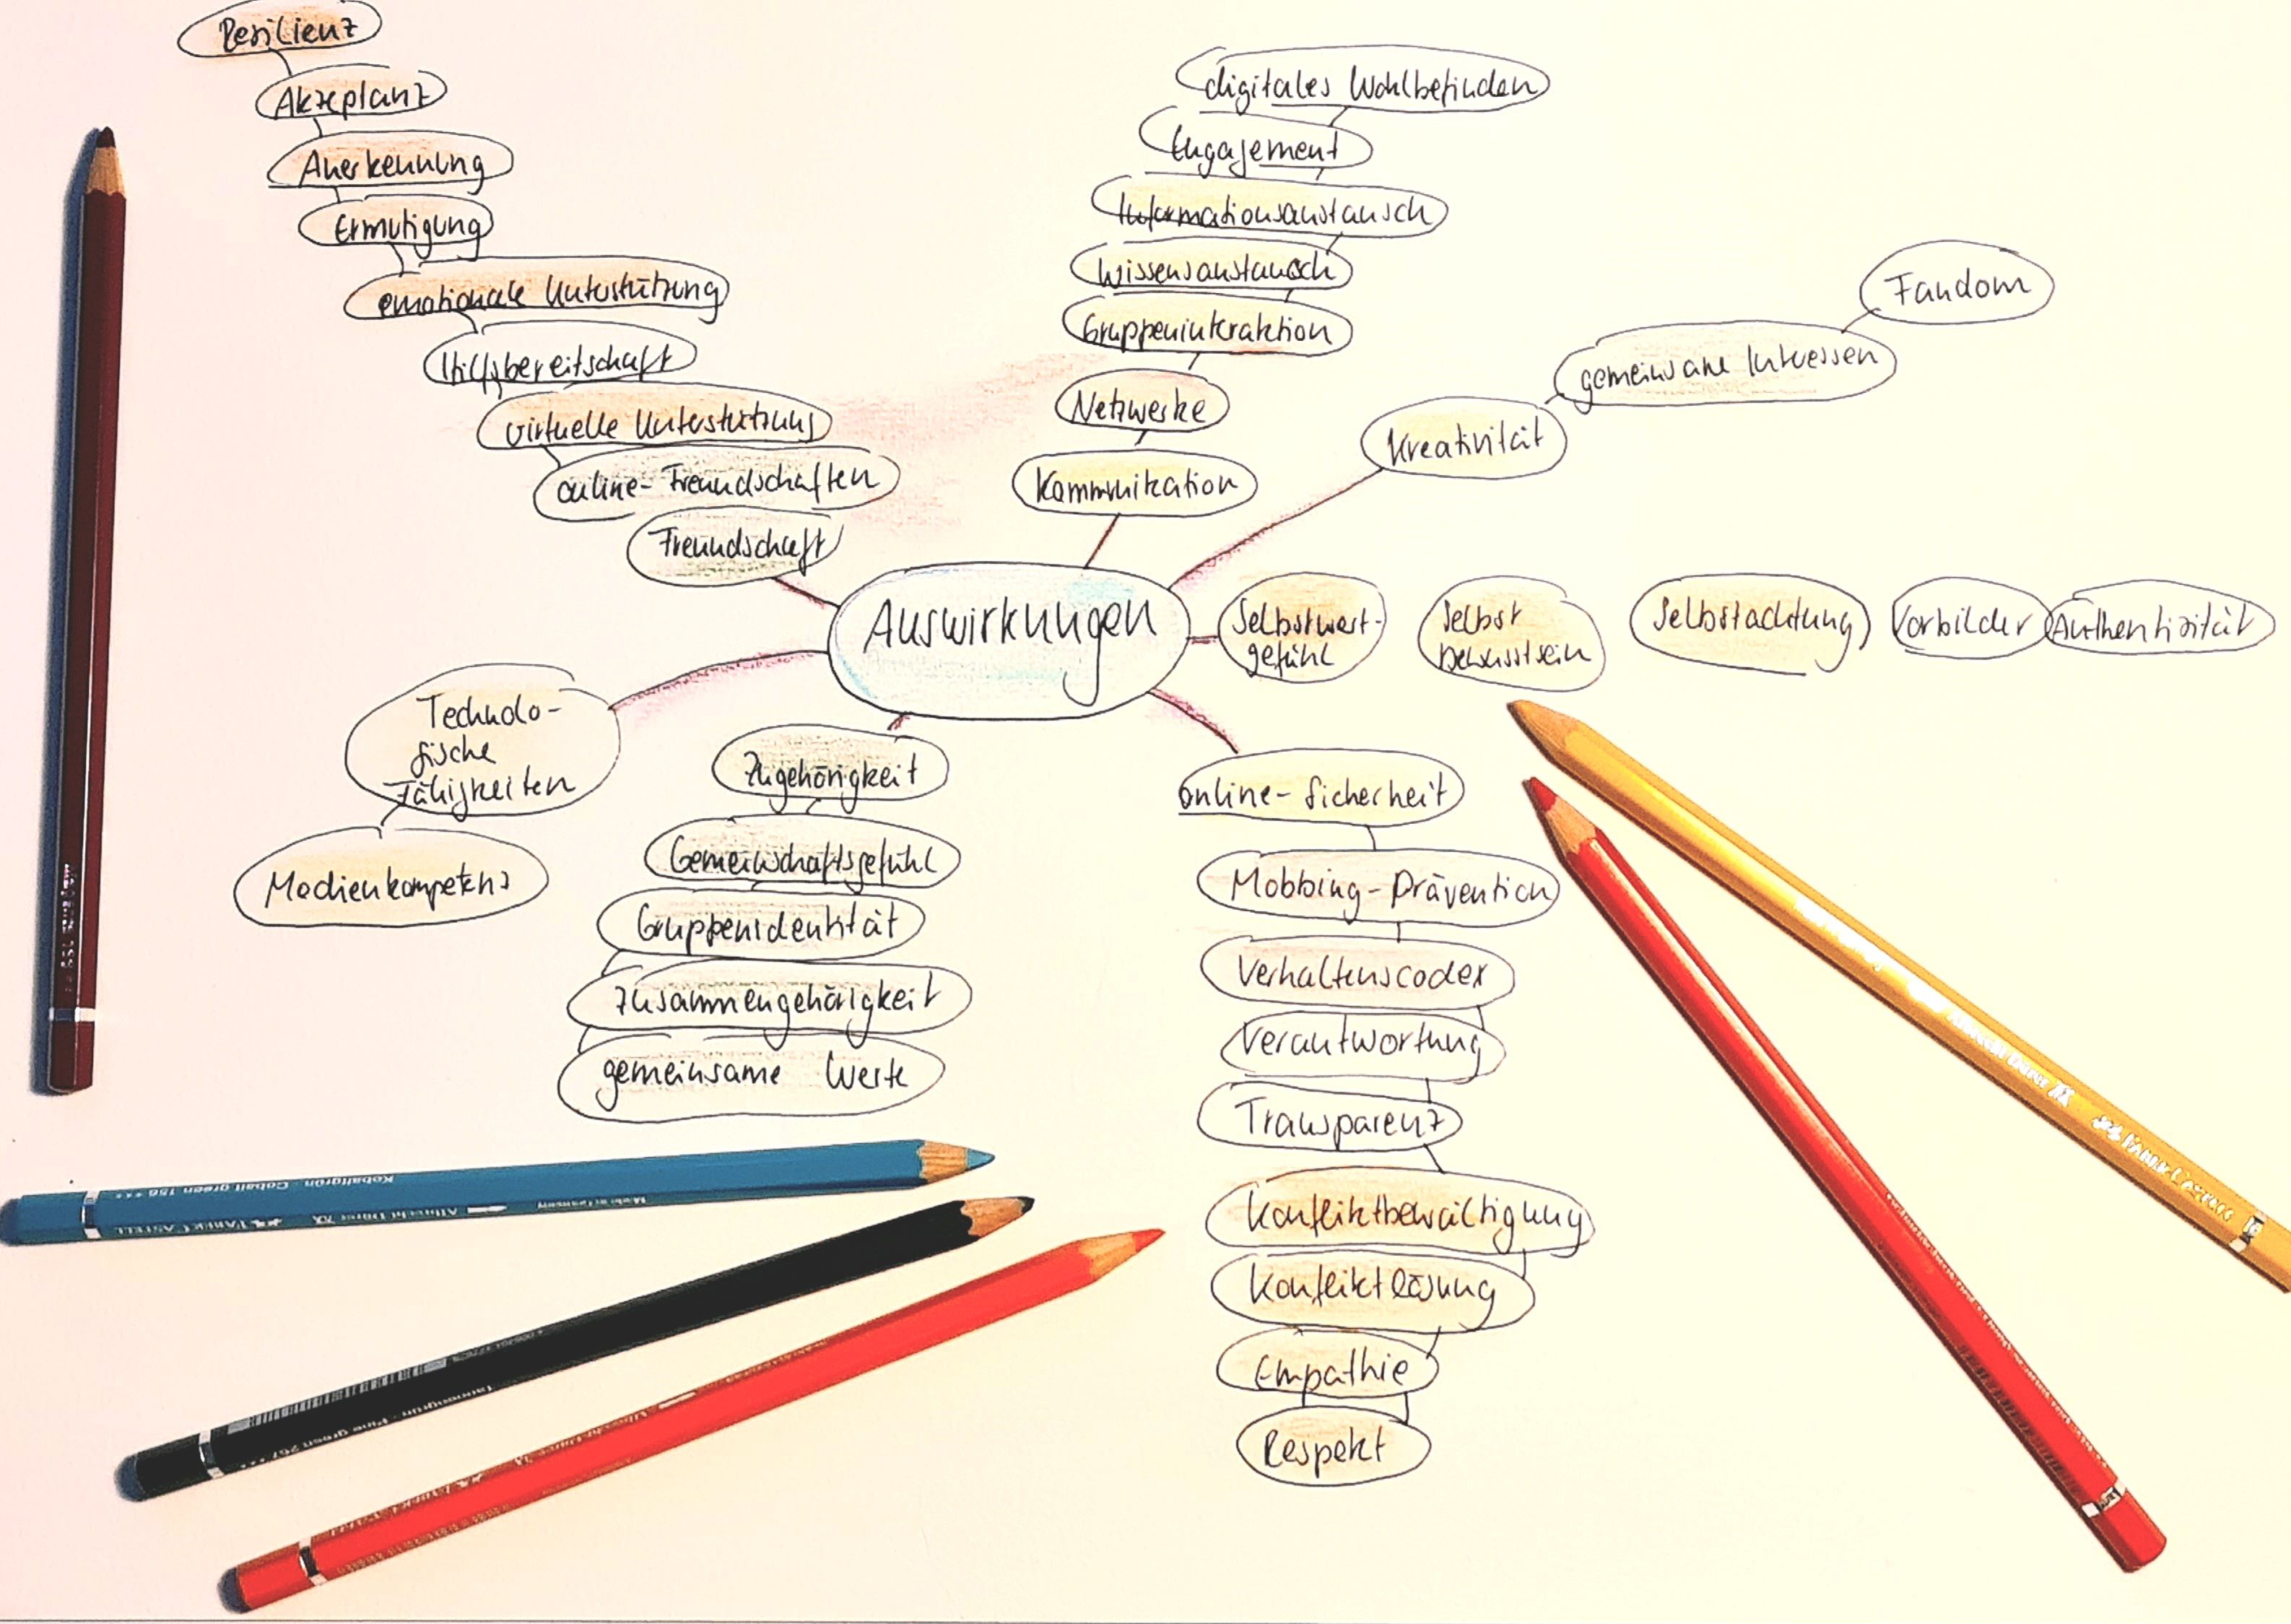 Resilienz
Akzeptanz
Anerkennung
Ermutigung
emotionale Unterstützung
Hilfsbereitschaft
virtuelle Unterstützung
online-Freundschaften
Freundschaft
digitales Wohlbefinden
Engagement
Informationsaustausch
Wissensaustausch
Gruppeninteraktion
Netzwerke
Kommunikation
Fandom
gemeinsame Interessen
Kreativität
Auswirkungen
Selbstwert-
gefühl
Selbst
bewusstsein
Selbstachtung
Vorbilder
Authentizität
Technolo-
gische
Fähigkeiten
Medienkompetenz
Zugehörigkeit
Gemeinschaftsgefühl
Gruppenidentität
Zusammengehörigkeit
gemeinsame Werte
online-Sicherheit
Mobbing-Prävention
Verhaltenscodex
Verantwortung
Transparenz
Konfliktbewältigung
Konfliktlösung
Empathie
Respekt
Kobaltgrün · Cobalt green 156 ***
Albrecht Dürer
Made in Germany
FABER-CASTELL